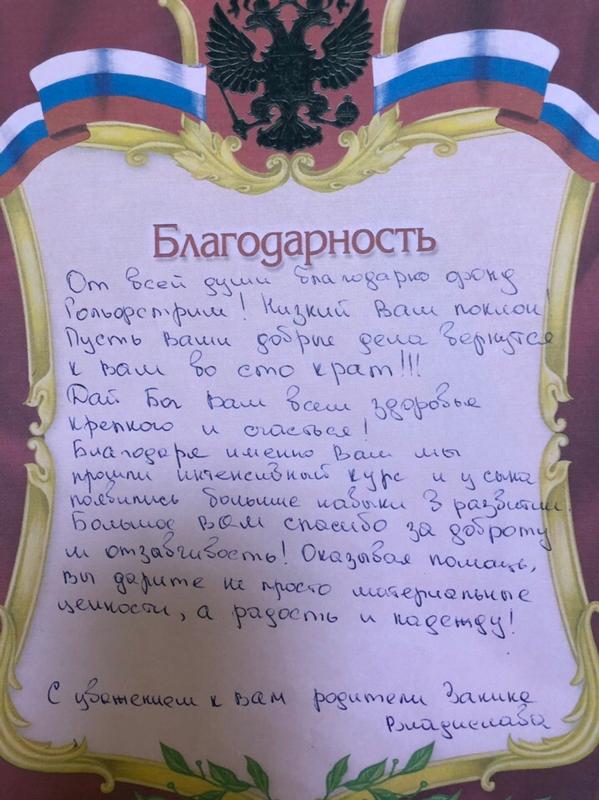 Благодарность
От всей души благодарю фонд
Гольфстрим! Низкий Вам поклон!
Пусть ваши добрые дела вернутся
к вам во сто крат!!!
Дай Бог Вам всем здоровья
крепкого и счастья!
Благодаря именно Вам мы
прошли интенсивный курс и у сына
появились большие навыки в развитии.
Большое вам спасибо за доброту
и отзавчивость! Оказывая помощь,
вы дарите не просто материальные
ценности, а радость и надежду!
С уважением к вам родители
Владислава